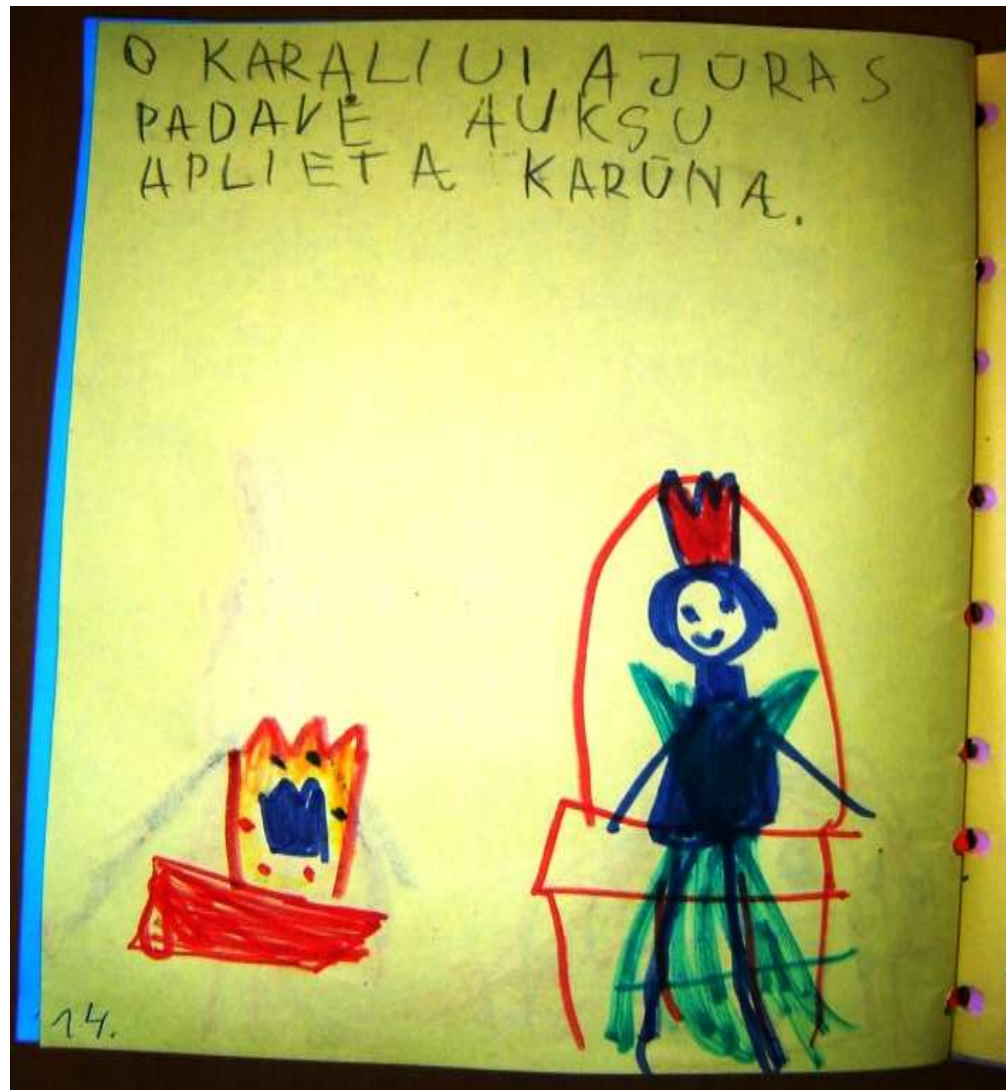 O KARALIUI AJŪRAS
PADAVĖ AUKSU
APLIETĄ KARŪNĄ.
14.